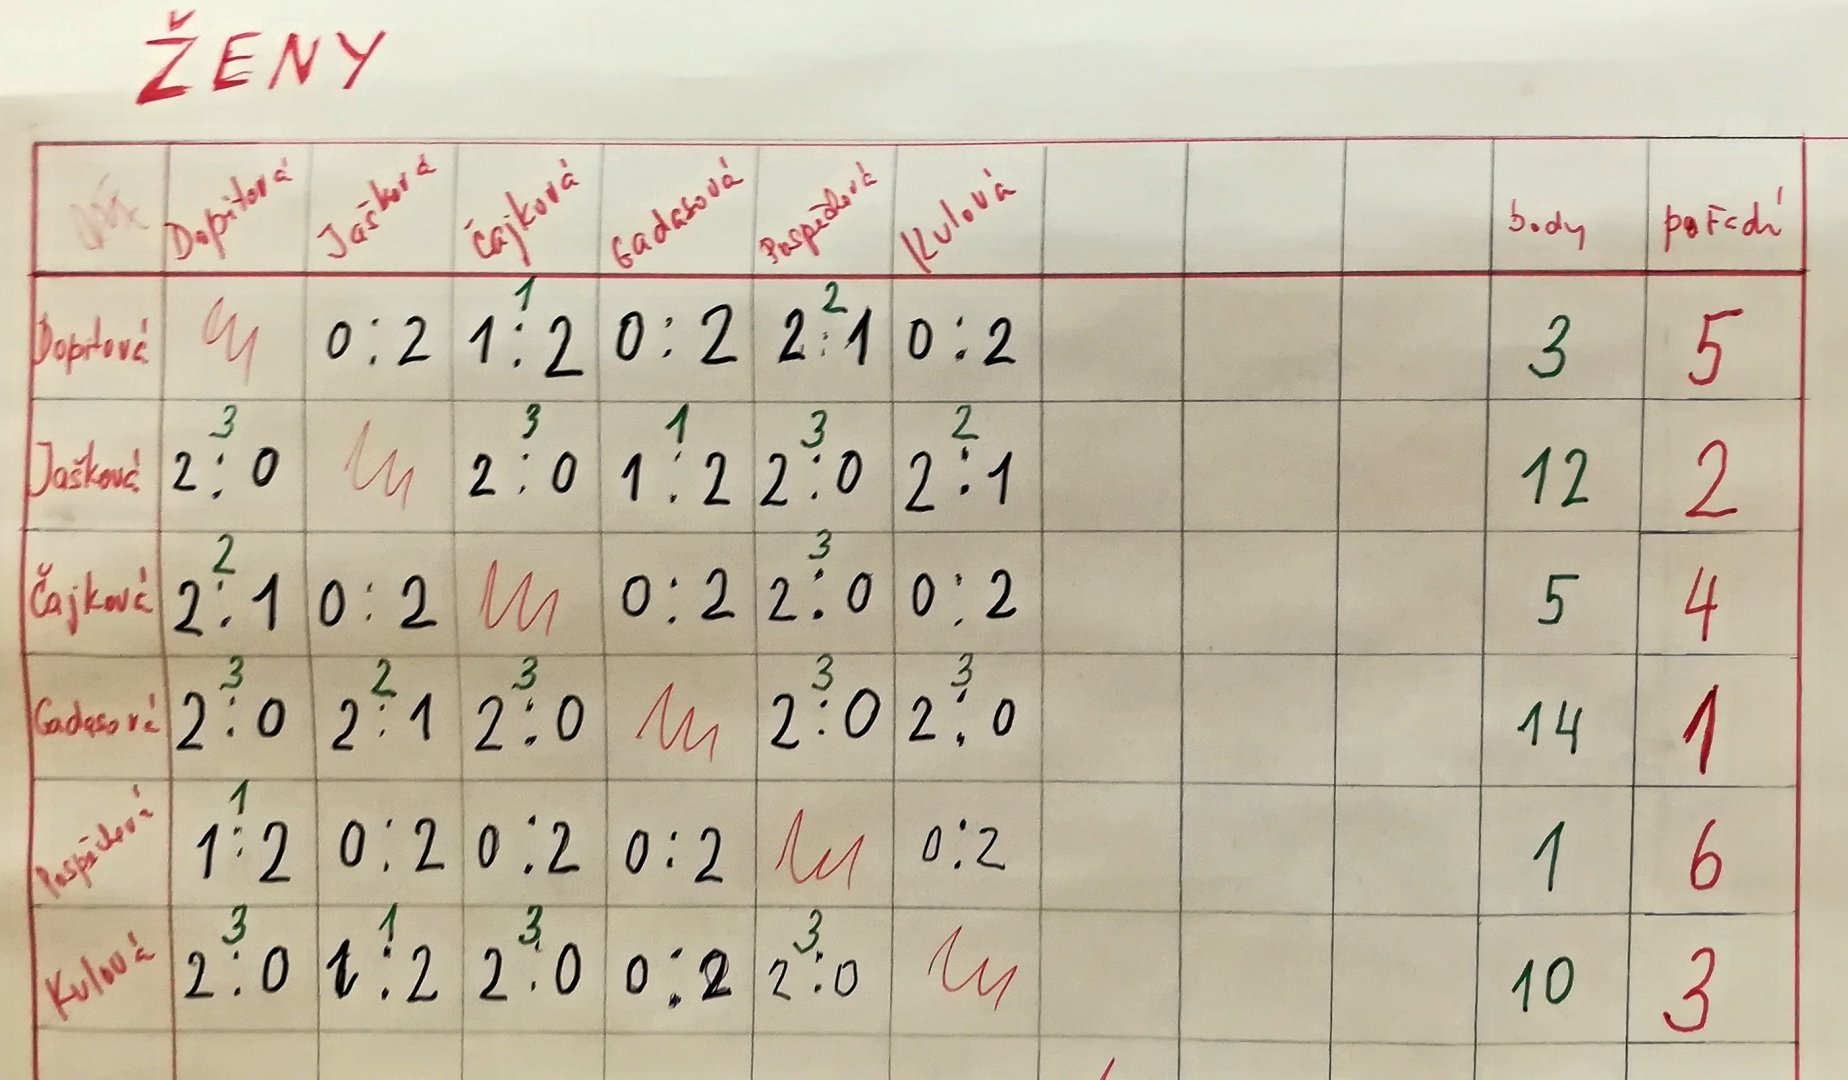 ŽENY
Dopitová Jašková Čajková Gadasová Pospěchová Kulová body pořadí
1 2
Dopitová 0:2 1:2 0:2 2:1 0:2 3 5
3 3 1 3 2
Jašková 2:0 2:0 1:2 2:0 2:1 12 2
2 3
Čajková 2:1 0:2 0:2 2:0 0:2 5 4
3 2 3 3 3
Gadasová 2:0 2:1 2:0 2:0 2:0 14 1
1
Pospěchová 1:2 0:2 0:2 0:2 0:2 1 6
3 1 3 3
Kulová 2:0 1:2 2:0 0:2 2:0 10 3